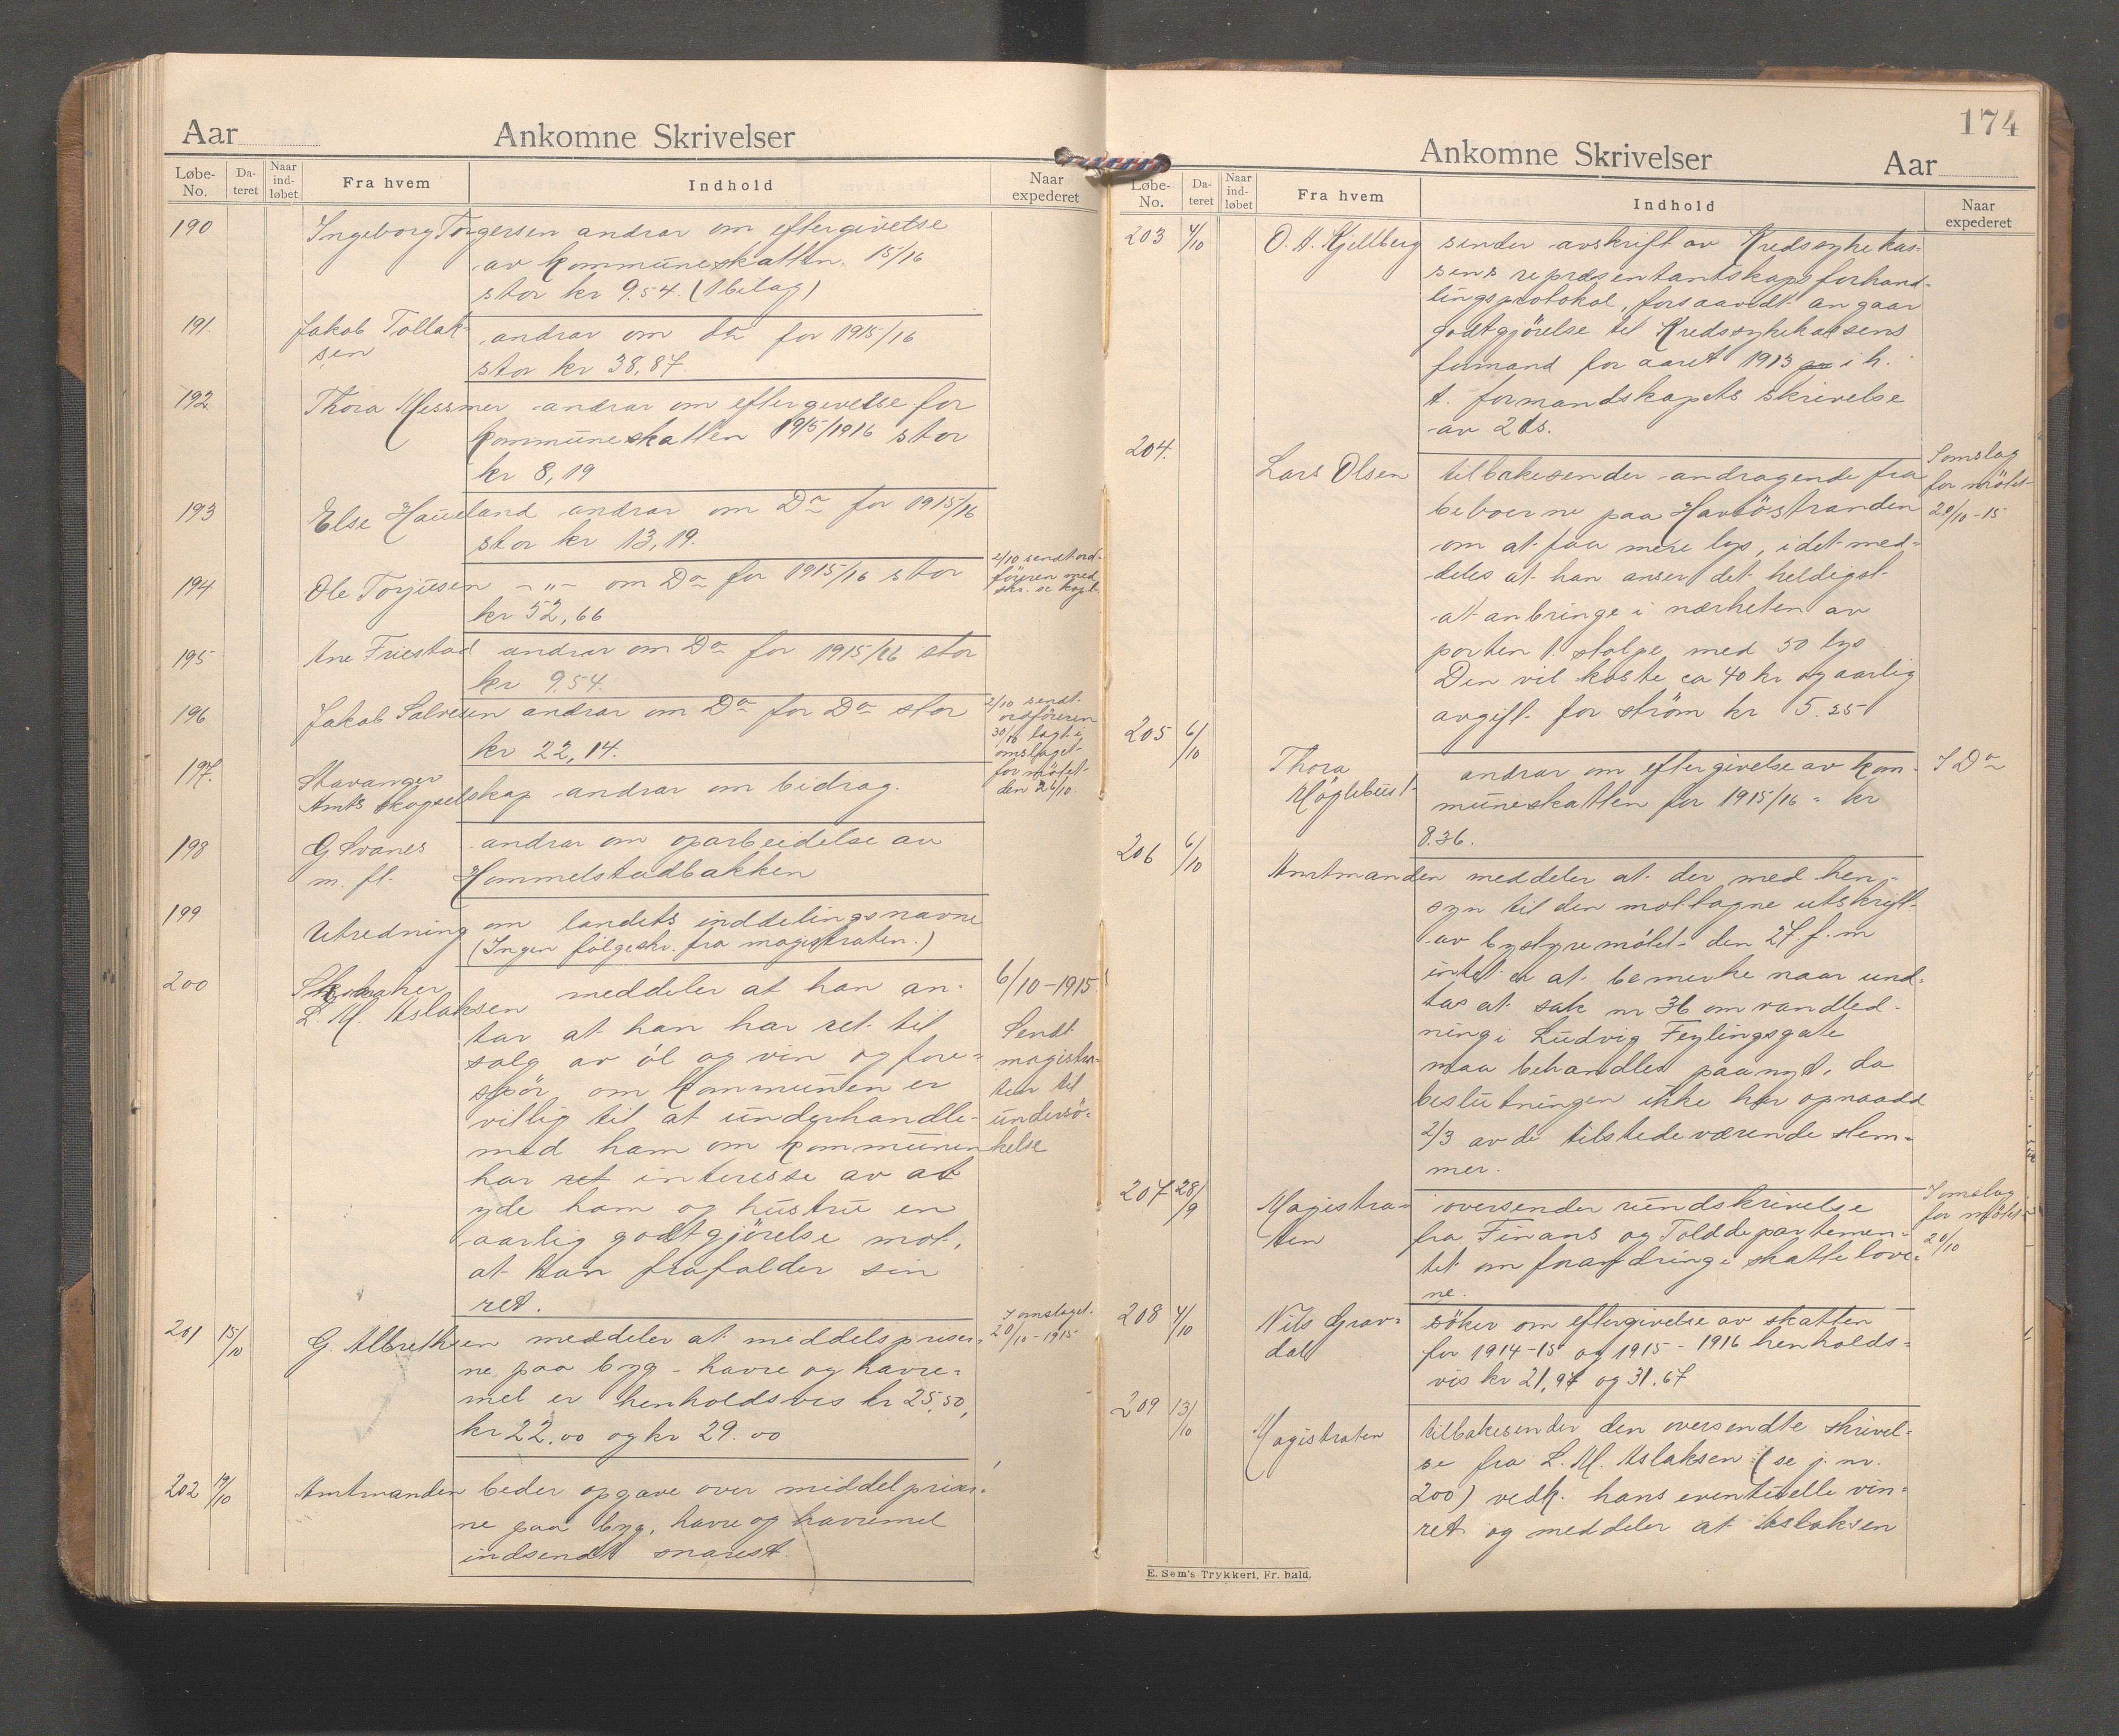 Aar
Ankomne Skrivelser
Løbe-No.
Da-teret
Naar ind-løbet
Fra hvem
Indhold
Naar expederet
190
Ingeborg Torgersen andrar om eftergivelse
av kommuneskatten 15/16
stor kr 9.54. (1 bilag)
191.
Jakob Tollak-
sen
andrar om do for 1915/16
stor kr 38,87.
192
Thora Messmer andrar om eftergivelse for
kommuneskatten 1915/1916 stor
kr 8,19
193
Else Haueland andrar om Do for 1915/16
stor kr 13,19.
194
Ole Torjusen - " - om Do for 1915/16 stor
kr 52,66
2/10 sendt ord-
föreren med
skr. se kopi
195
Ane Friestad andrar om Do for 1915/16 stor
kr 9.54.
196
Jakob Salvesen andrar om Do for Do stor
kr 22,14.
2/10 sendt
ordföreren
30/10 lagt i
omslaget
for mötet
den 26/10
197.
Stavanger
Amts skogselskap andrar om bidrag.
198
G Svanes
m. fl.
andrar om oparbeidelse av
Hommelstadbakken
199
Utredning om landets inddelingsnavne
(Ingen følgeskr. fra magistraten.)
200
Skomaker
L. M. Aslaksen
meddeler at han an-
tar at han har ret til
salg av öl og vin og fore-
spör om kommunen er
villig til at underhandle
med ham om kommunen
har ret interesse av at
yde ham og hustru en
aarlig godtgjörelse mot,
at han frafalder sin
ret.
6/10-1915
Sendt
magistra-
ten til
undersö-
kelse
201
15/10
G. Albrethsen meddeler at middelspriser-
ne paa byg - havre og havre-
mel er henholdsvis kr 25,50,
kr 22.00 og kr 29.00
I omslaget
20/10-1915
202
19/10
Amtmanden beder opgave over middelpriser-
ne paa byg, havre og havremel
indsendt snarest.
174
Ankomne Skrivelser
Aar
Løbe-No.
Da-teret
Naar ind-løbet
Fra hvem
Indhold
Naar expederet
203
4/10
O. A. Kjellberg
sender avskrift av Kredssykekas-
sens repræsentantskaps forhand-
lingsprotokol, forsaavidt angaar
godtgjörelse til Kredssykekassens
formand for aaret 1913 i h.
t. formandskapets skrivelse
av 2 ds.
204.
Lars Olsen
tilbakesender andragende fra
beboerne paa Havöstranden
om at faa mere lys, idet med-
deles at han anser det heldigst
at anbringe i nærheten av
porten 1. stolpe med 50 lys
Den vil koste ca 40 kr og aarlig
avgift for ström kr 5.25
I omslag
for mötet
20/10-15
205
6/10
Thora
Möglebust
andrar om eftergivelse av kom-
muneskatten for 1915/16 = kr
8.36.
I Do
206
6/10
Amtmanden meddeler at der med hen-
syn til den mottagne utskrift
av bystyremötet den 27. f. m
intet er at bemerke naar und-
tas at sak nr 36 om vandled-
ning i Ludvig Feylingsgate
maa behandles paanyt, da
beslutningen ikke har opnaadd
2/3 av de tilstedeværende stem-
mer.
207
28/9
Magistra-
ten
oversender rundskrivelse
fra Finans og Tolddepartemen-
tet om forandring i skattelove-
ne.
I omslag
for mötet
20/10
208
4/10
Nils Grav-
dal
söker om eftergivelse av skatten
for 1914-15 og 1915-1916 henholds-
vis kr 21,97 og 31.67
209
13/10
Magistraten
tilbakesender den oversendte skrivel-
se fra L. M. Aslaksen (se j. nr.
200) vedk. hans eventuelle vin-
ret og meddeler at Aslaksen
E. Sem's Trykkeri, Fr.hald.